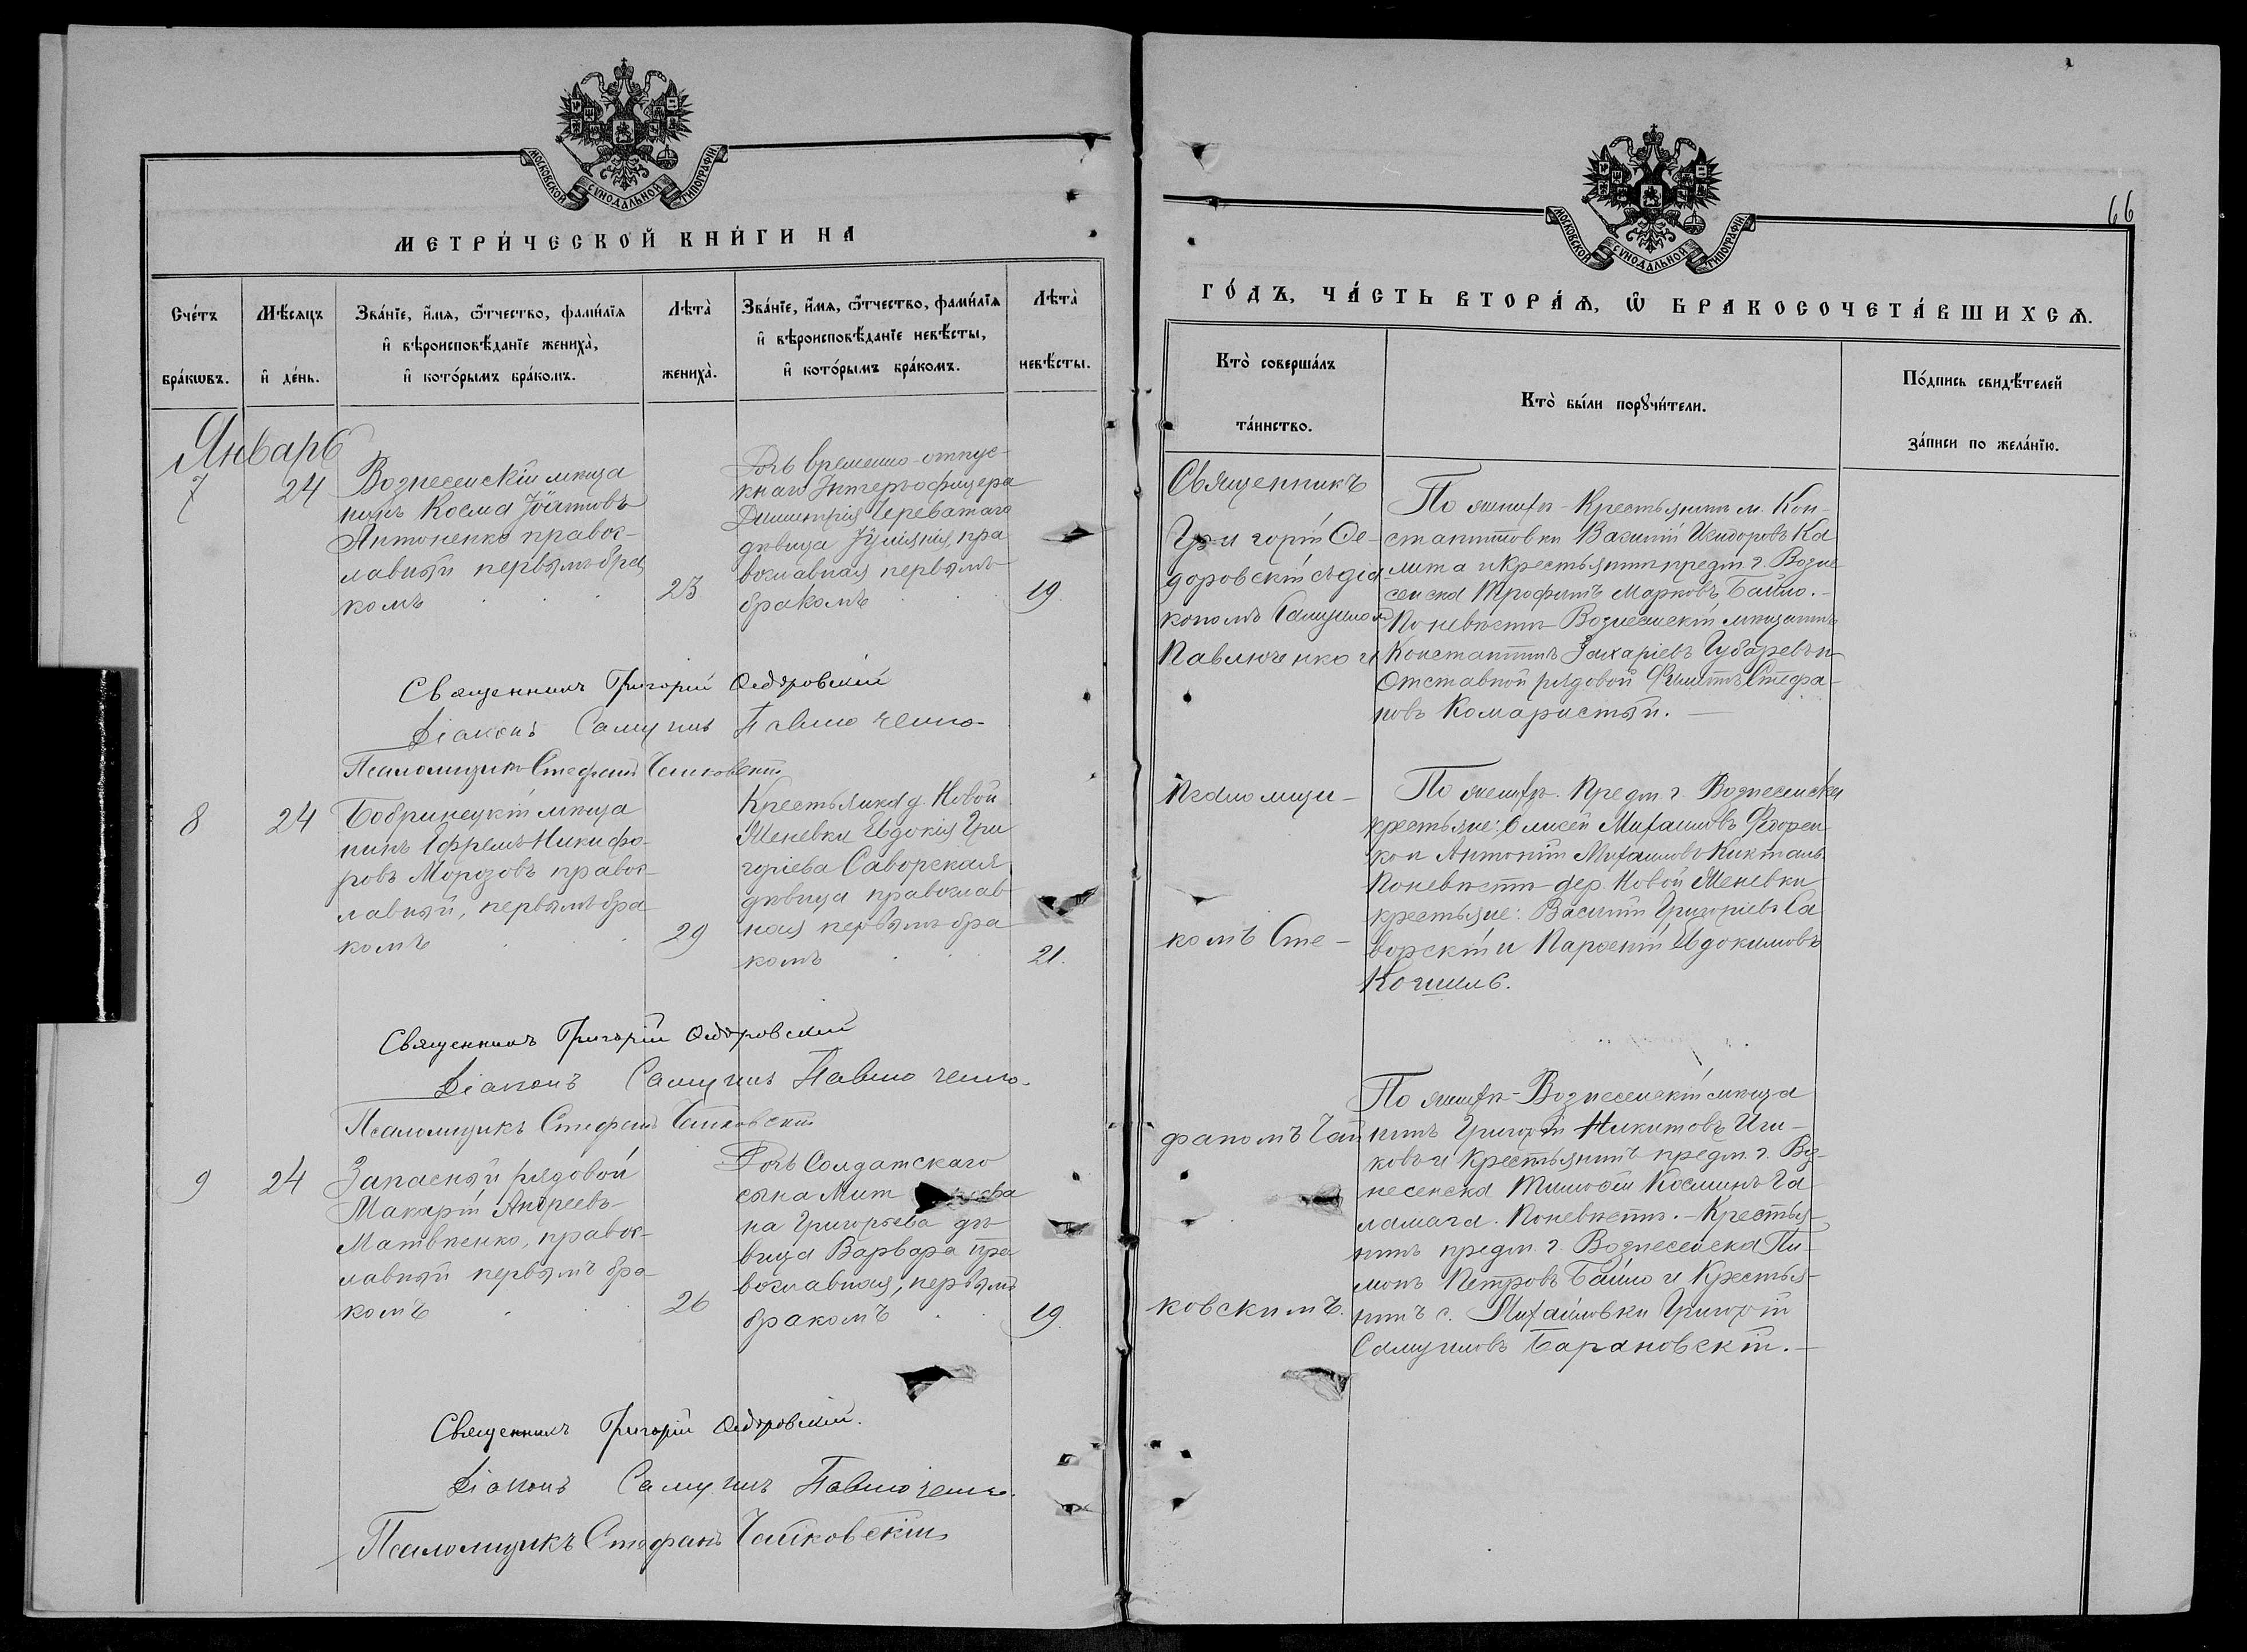 МОСКОВСКОЙ СѴНОДАЛЬНОЙ ТИПОГРАФІИ
МЕТРИ́ЧЕСКОЙ КНИ́ГИ НА
Сче́тъ бра́кѡвъ.
Мѣ́сяцъ и҆ де́нь.
Зва́нїе, и҆́мѧ, ѻ҆́тчество, фами́лїѧ и҆ вѣроисповѣ́данїе жениха̀, и҆ кото́рымъ бра́комъ.
Лѣта̀ жениха̀.
Зва́нїе, и҆́мѧ, ѻ҆́тчество, фами́лїѧ и҆ вѣроисповѣ́данїе невѣ́сты, и҆ кото́рымъ бра́комъ.
Лѣта̀ невѣ́сты.
Январь
7
24
Вознесенскій мѣща
нинъ Косма
Антоненко правос-
лавный первымъ бра
комъ
23
Дочь временно-отпус-
кнаго Унтеръ-офицера
Димитрія Череватаго
дѣвица Іуліанія, пра
вославная первымъ
бракомъ
19.
Священникъ Григорій Ѳедоровскій
Діаконъ Самуилъ Павлюченко
Псаломщикъ Стефанъ Чайковскій
8
24
Бобринецкій мѣща
нинъ Ефремъ Никифо-
ровъ Морозовъ правос-
лавный, первымъ бра
комъ
29
Крестьянка д. Новой
Меневки Евдокія Гри
горіева Саворская
дѣвица православ-
ная первымъ бра
комъ
21.
Священникъ Григорій Ѳедоровскій
Діаконъ Самуилъ Павлюченко.
Псаломщикъ Стефанъ Чайковскій
9
24
Запасный рядовой
Макарій Андреевъ
Матвѣенко, правос-
лавный первымъ бра
комъ
26
Дочь Солдатскаго
сына Мит рофа
на Григорьева дѣ-
вица Варвара пра
вославная, первымъ
бракомъ
19.
Священникъ Григорій Ѳедоровскій.
Діаконъ Самуилъ Павлюченко.
Псаломщикъ Стефанъ Чайковскій
МОСКОВСКОЙ СѴНОДАЛЬНОЙ ТИПОГРАФІИ
66
ГО́ДЪ, ЧА́СТЬ ВТОРА́Ѧ, Ѡ҆ БРАКОСОЧЕТА́ВШИХСѦ.
Кто̀ соверша́лъ та́инство.
Кто̀ бы́ли порꙋчи́тели.
По́дпись свидѣ́телей за́писи по жела́нїю.
Священникъ
Григорій Ѳе-
доровскій съ діа
кономъ Самуиломъ
Павлюченко и
Псаломщи-
комъ Сте-
фаномъ Чай
ковскимъ.
По женихѣ - Крестьянинъ м. Кон-
стантиновки Василій Исидоровъ Ка
лита и крестьянинъ предм. г. Возне
сенска Трофимъ Марковъ Байло.-
По невѣстѣ - Вознесенскій мѣщанинъ
Константинъ Захаріевъ Губаревъ и
Отставной рядовой Филиппъ Стефа-
новъ Комаристый.
По женихѣ - Предм. г. Вознесенска
крестьяне: Елисей Михаиловъ Федорен
ко и Антоній Михаиловъ Никталь.
По невѣстѣ - дер. Новой Меневки
крестьяне: Василій Григоріевъ Са
ворскій и Парѳеній Евдокимовъ
По женихѣ - Вознесенскій мѣща
нинъ Григорій Никитовъ
ковъ и крестьянинъ предм. г. Воз-
несенска Тимоѳей Косминъ Га
ламага. По невѣстѣ. - Крестья-
нинъ предм. г. Вознесенска Пи-
монъ Петровъ Байло и Крестья-
нинъ с. Михайловки Григорій
Самуиловъ Барановскій.-